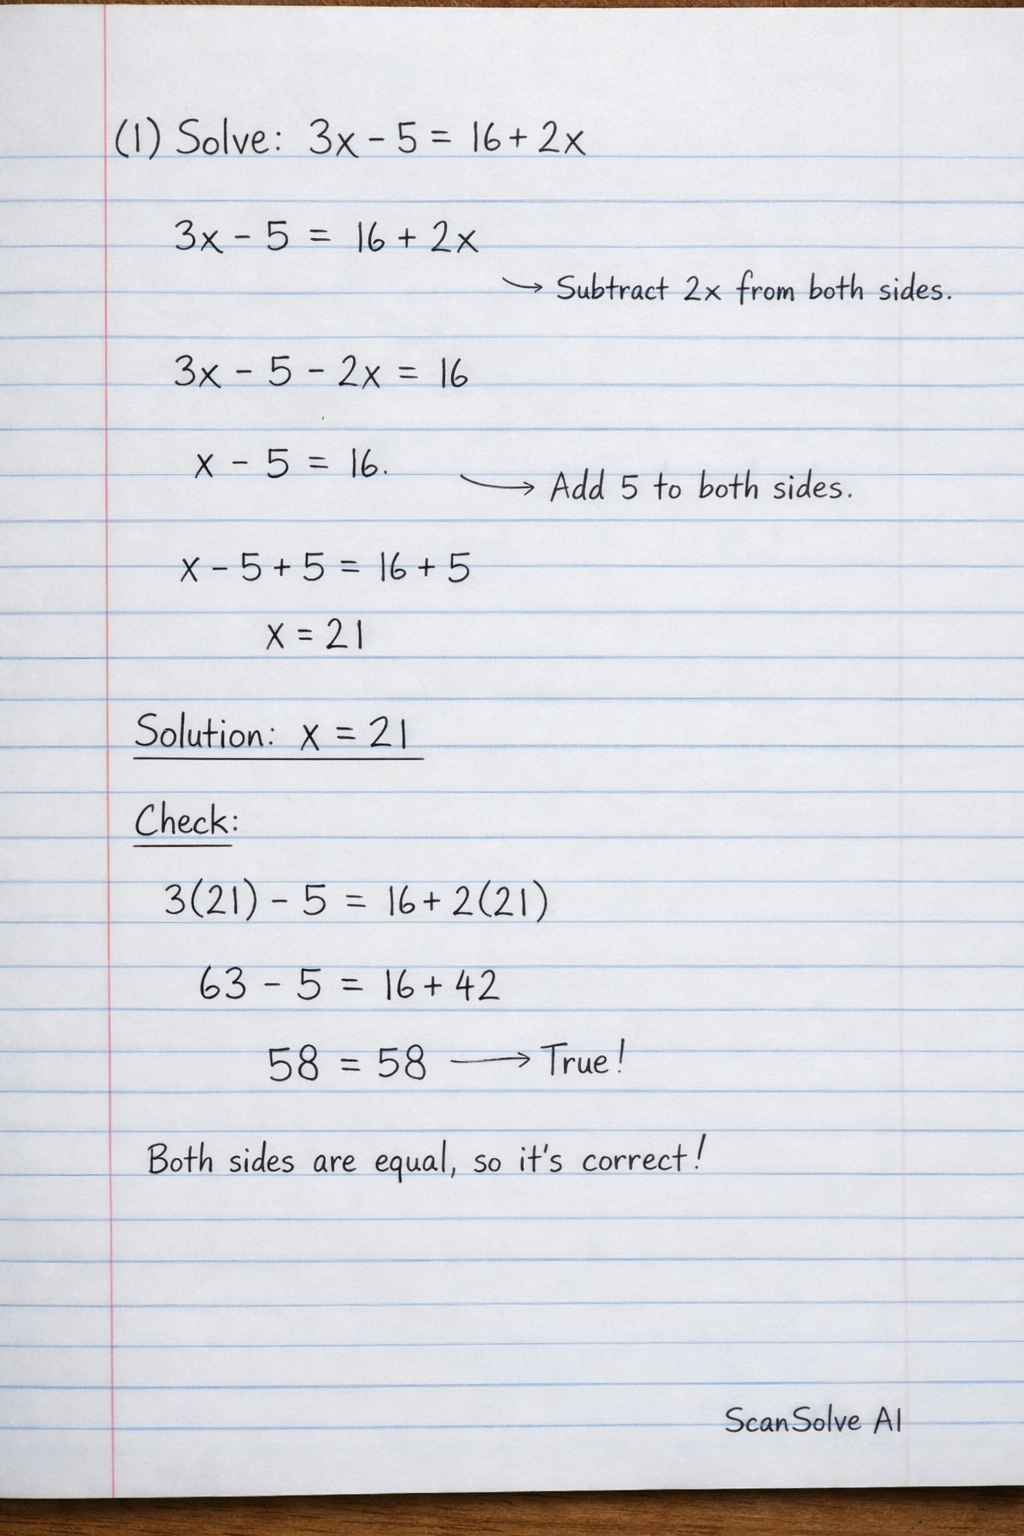 (1) Solve: 3x - 5 = 16 + 2x
3x - 5 = 16 + 2x
→ Subtract 2x from both sides.
3x - 5 - 2x = 16
x - 5 = 16.
→ Add 5 to both sides.
x - 5 + 5 = 16 + 5
x = 21
Solution: x = 21
Check:
3(21) - 5 = 16 + 2(21)
63 - 5 = 16 + 42
58 = 58 → True!
Both sides are equal, so it's correct!
ScanSolve AI